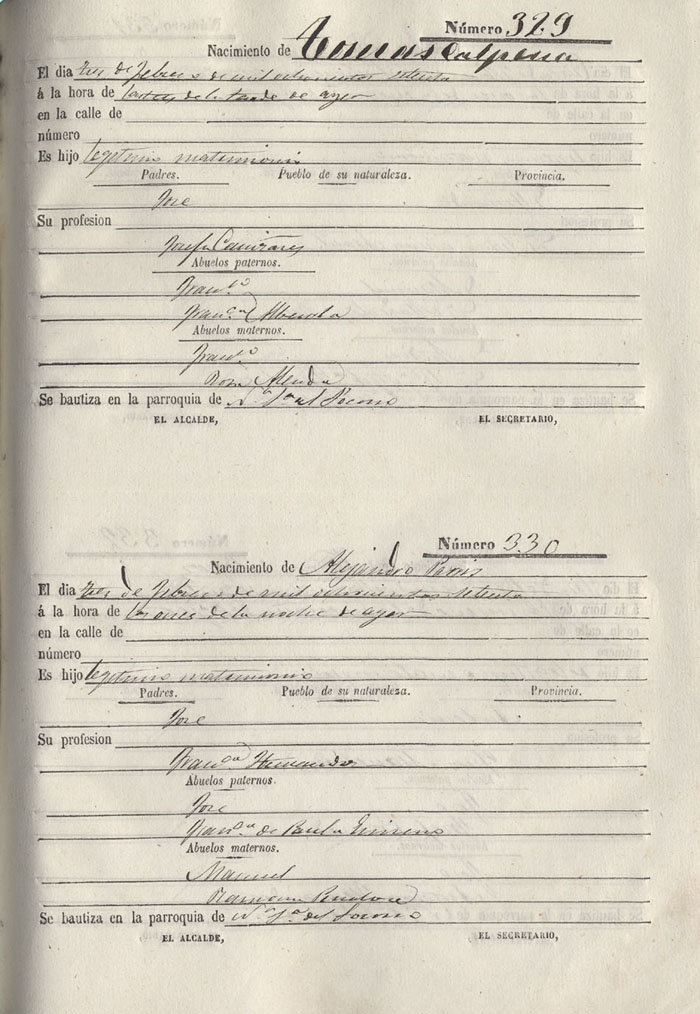 Número 329
Nacimiento de Tomas Calpena
El dia tres de febrero de mil ochocientos setenta
á la hora de las tres de la tarde de ayer
en la calle de
número
Es hijo legitimo matrimonio
Padres. Pueblo de su naturaleza. Provincia.
Jose
Su profesion
Josefa Cañizares
Abuelos paternos.
Franco
Franca Alberola
Abuelos maternos.
Franco
Rosa Alenda
Se bautiza en la parroquia de N.a S.ra del Socorro
EL ALCALDE, EL SECRETARIO,
Número 330
Nacimiento de Alejandro
El dia tres de febrero de mil ochocientos setenta
á la hora de las once de la noche de ayer
en la calle de
número
Es hijo legitimo matrimonio
Padres. Pueblo de su naturaleza. Provincia.
Jose
Su profesion
Franca Hernandez
Abuelos paternos.
Jose
Franca de Paula
Abuelos maternos.
Manuel
Ramona
Se bautiza en la parroquia de N.a S.a del Socorro
EL ALCALDE, EL SECRETARIO,